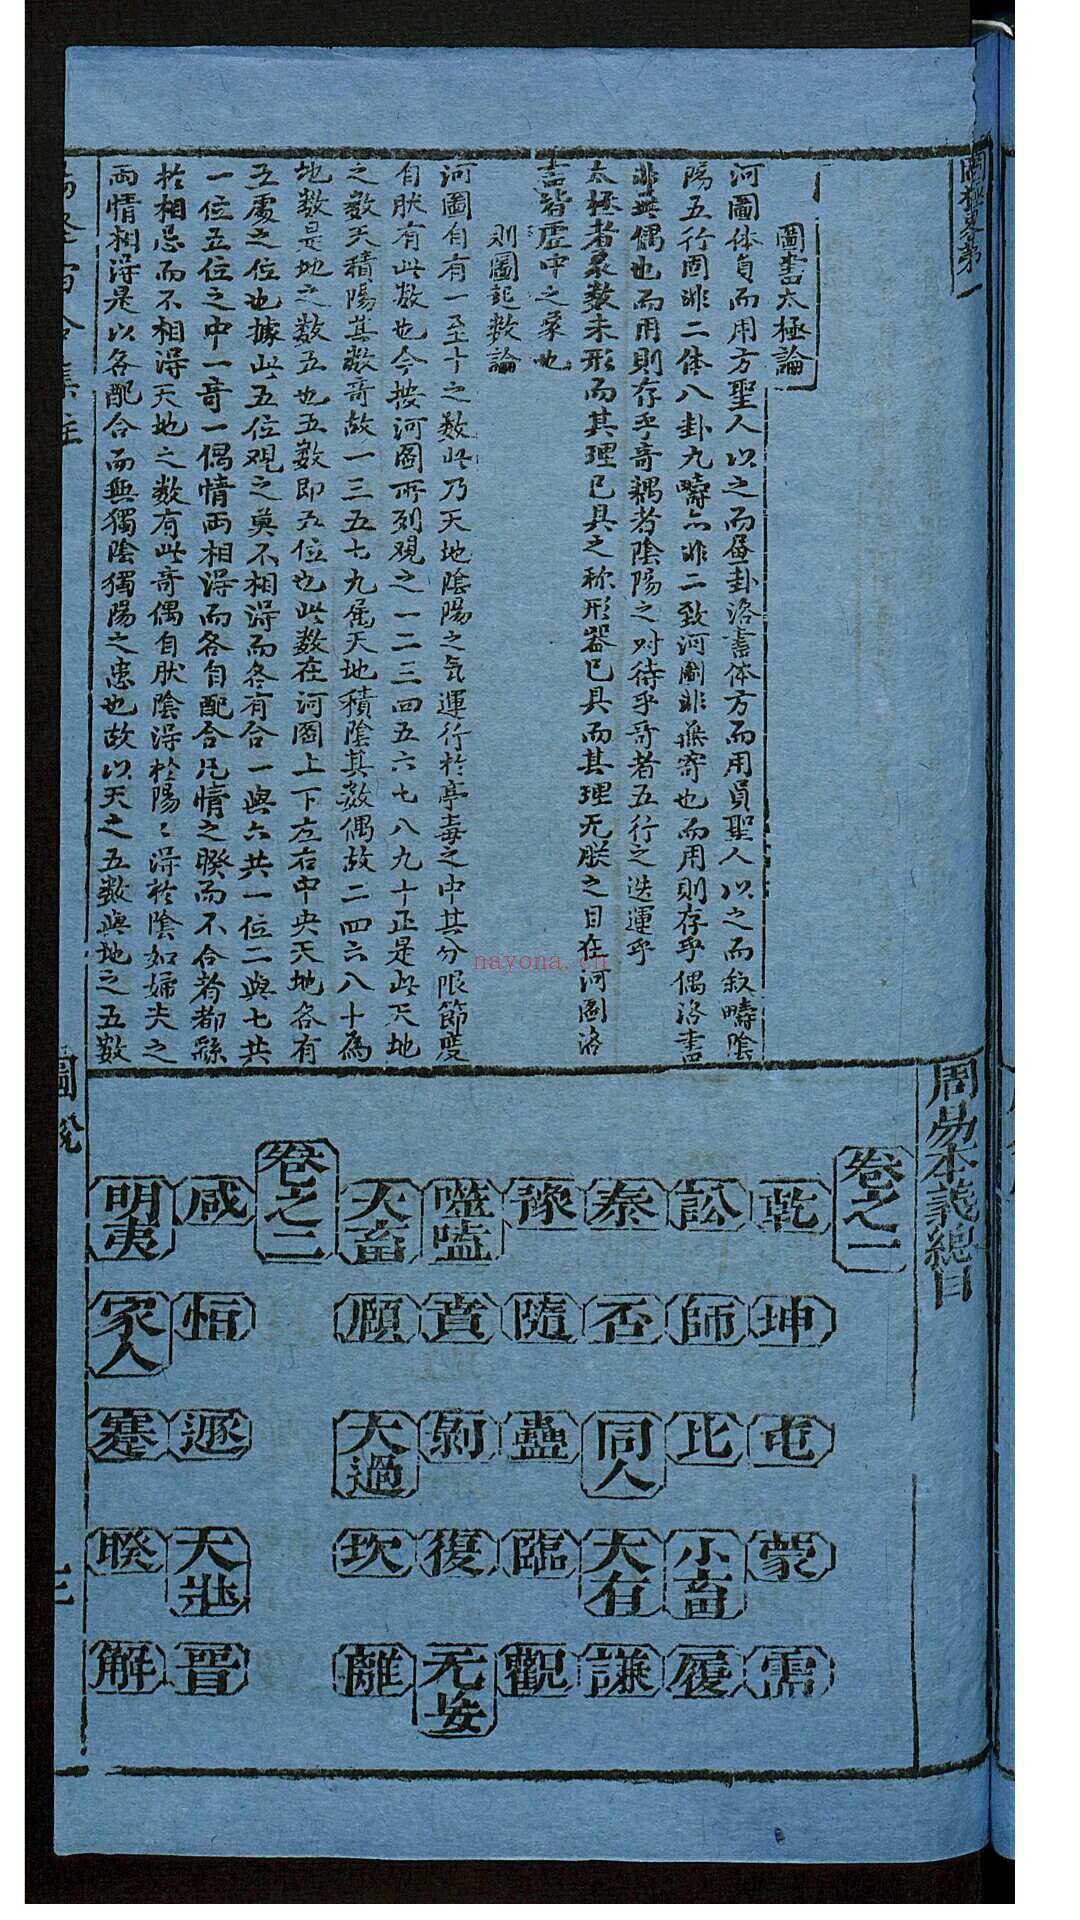 圖書太極論
河圖体負而用方聖人以之而畫卦洛書体方而用員聖人以之而叙疇陰
陽五行固非二体八卦九疇亦非二致河圖非無竒也而用則存乎偶洛書
非無偶也而用則存乎竒耦者陰陽之对待乎竒者五行之迭運乎
太極者象数未形而其理已具之称形器已具而其理无朕之目在河圖洛
書皆虛中之象也
則圖起数論
河圖自有一至十之数此乃天地陰陽之气運行於亭毒之中其分限節度
自肰有此数也今按河圖所列观之一二三四五六七八九十正是此天地
之数天積陽其数竒故一三五七九属天地積陰其数偶故二四六八十為
地数是地之数五也五数即五位也此数在河圖上下左右中央天地各有
五處之位也據此五位观之莫不相淂而各有合一與六共一位二與七共
一位五位之中一竒一偶情両相淂而各自配合凡情之暌而不合者都繇
扵相忌而不相淂天地之数有此竒偶自肰陰淂扵陽〻淂扵陰如婦夫之
両情相淂是以各配合而無獨陰獨陽之患也故以天之五数與地之五数
圖説
周易本義總目
卷之一
乾 坤 屯 蒙 需
訟 師 比 小畜 履
泰 否 同人 大有 謙
豫 隨 蠱 臨 觀
噬嗑 賁 剝 復 无妄
大畜 頤 大過 坎 離
卷之二
咸 恒 遯 大壯 晋
明夷 家人 蹇 睽 解
nayona.cn